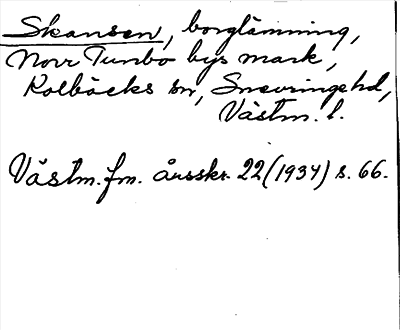 Skansen, borglämning,
Norr Tunbo bys mark,
Kolbäcks sn, Snevringe hd,
Västm. l.
Västm. fm. årsskr. 22 (1934) s. 66.